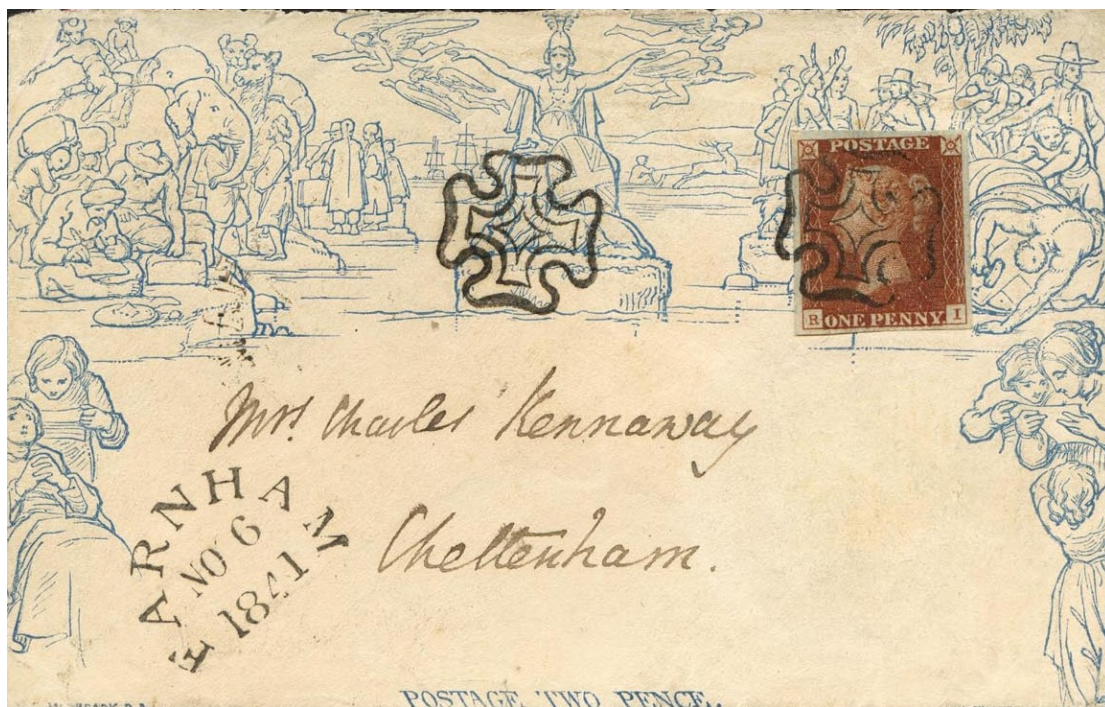 POSTAGE
R ONE PENNY I
Mrs. Charles Kennaway
Cheltenham.
FARNHAM
NO 6
1841
POSTAGE TWO PENCE.